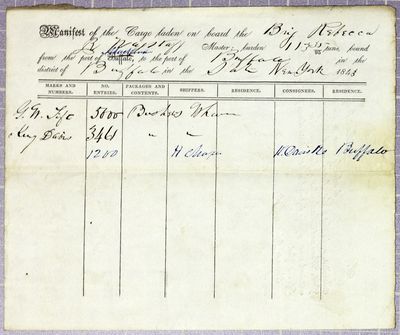 Manifest of the Cargo laden on board the Brig Rebecca
Master, burden 11 35/95 tons, bound
from the port of Buffalo, to the port of Buffalo in the
district of Buffalo in the State New York 1843
MARKS AND NUMBERS. NO. ENTRIES. PACKAGES AND CONTENTS. SHIPPERS. RESIDENCE. CONSIGNEES. RESIDENCE.
G. W. Tifft 5000 Bushes Wheat
King Davis 3461 " "
1200 H Buffalo